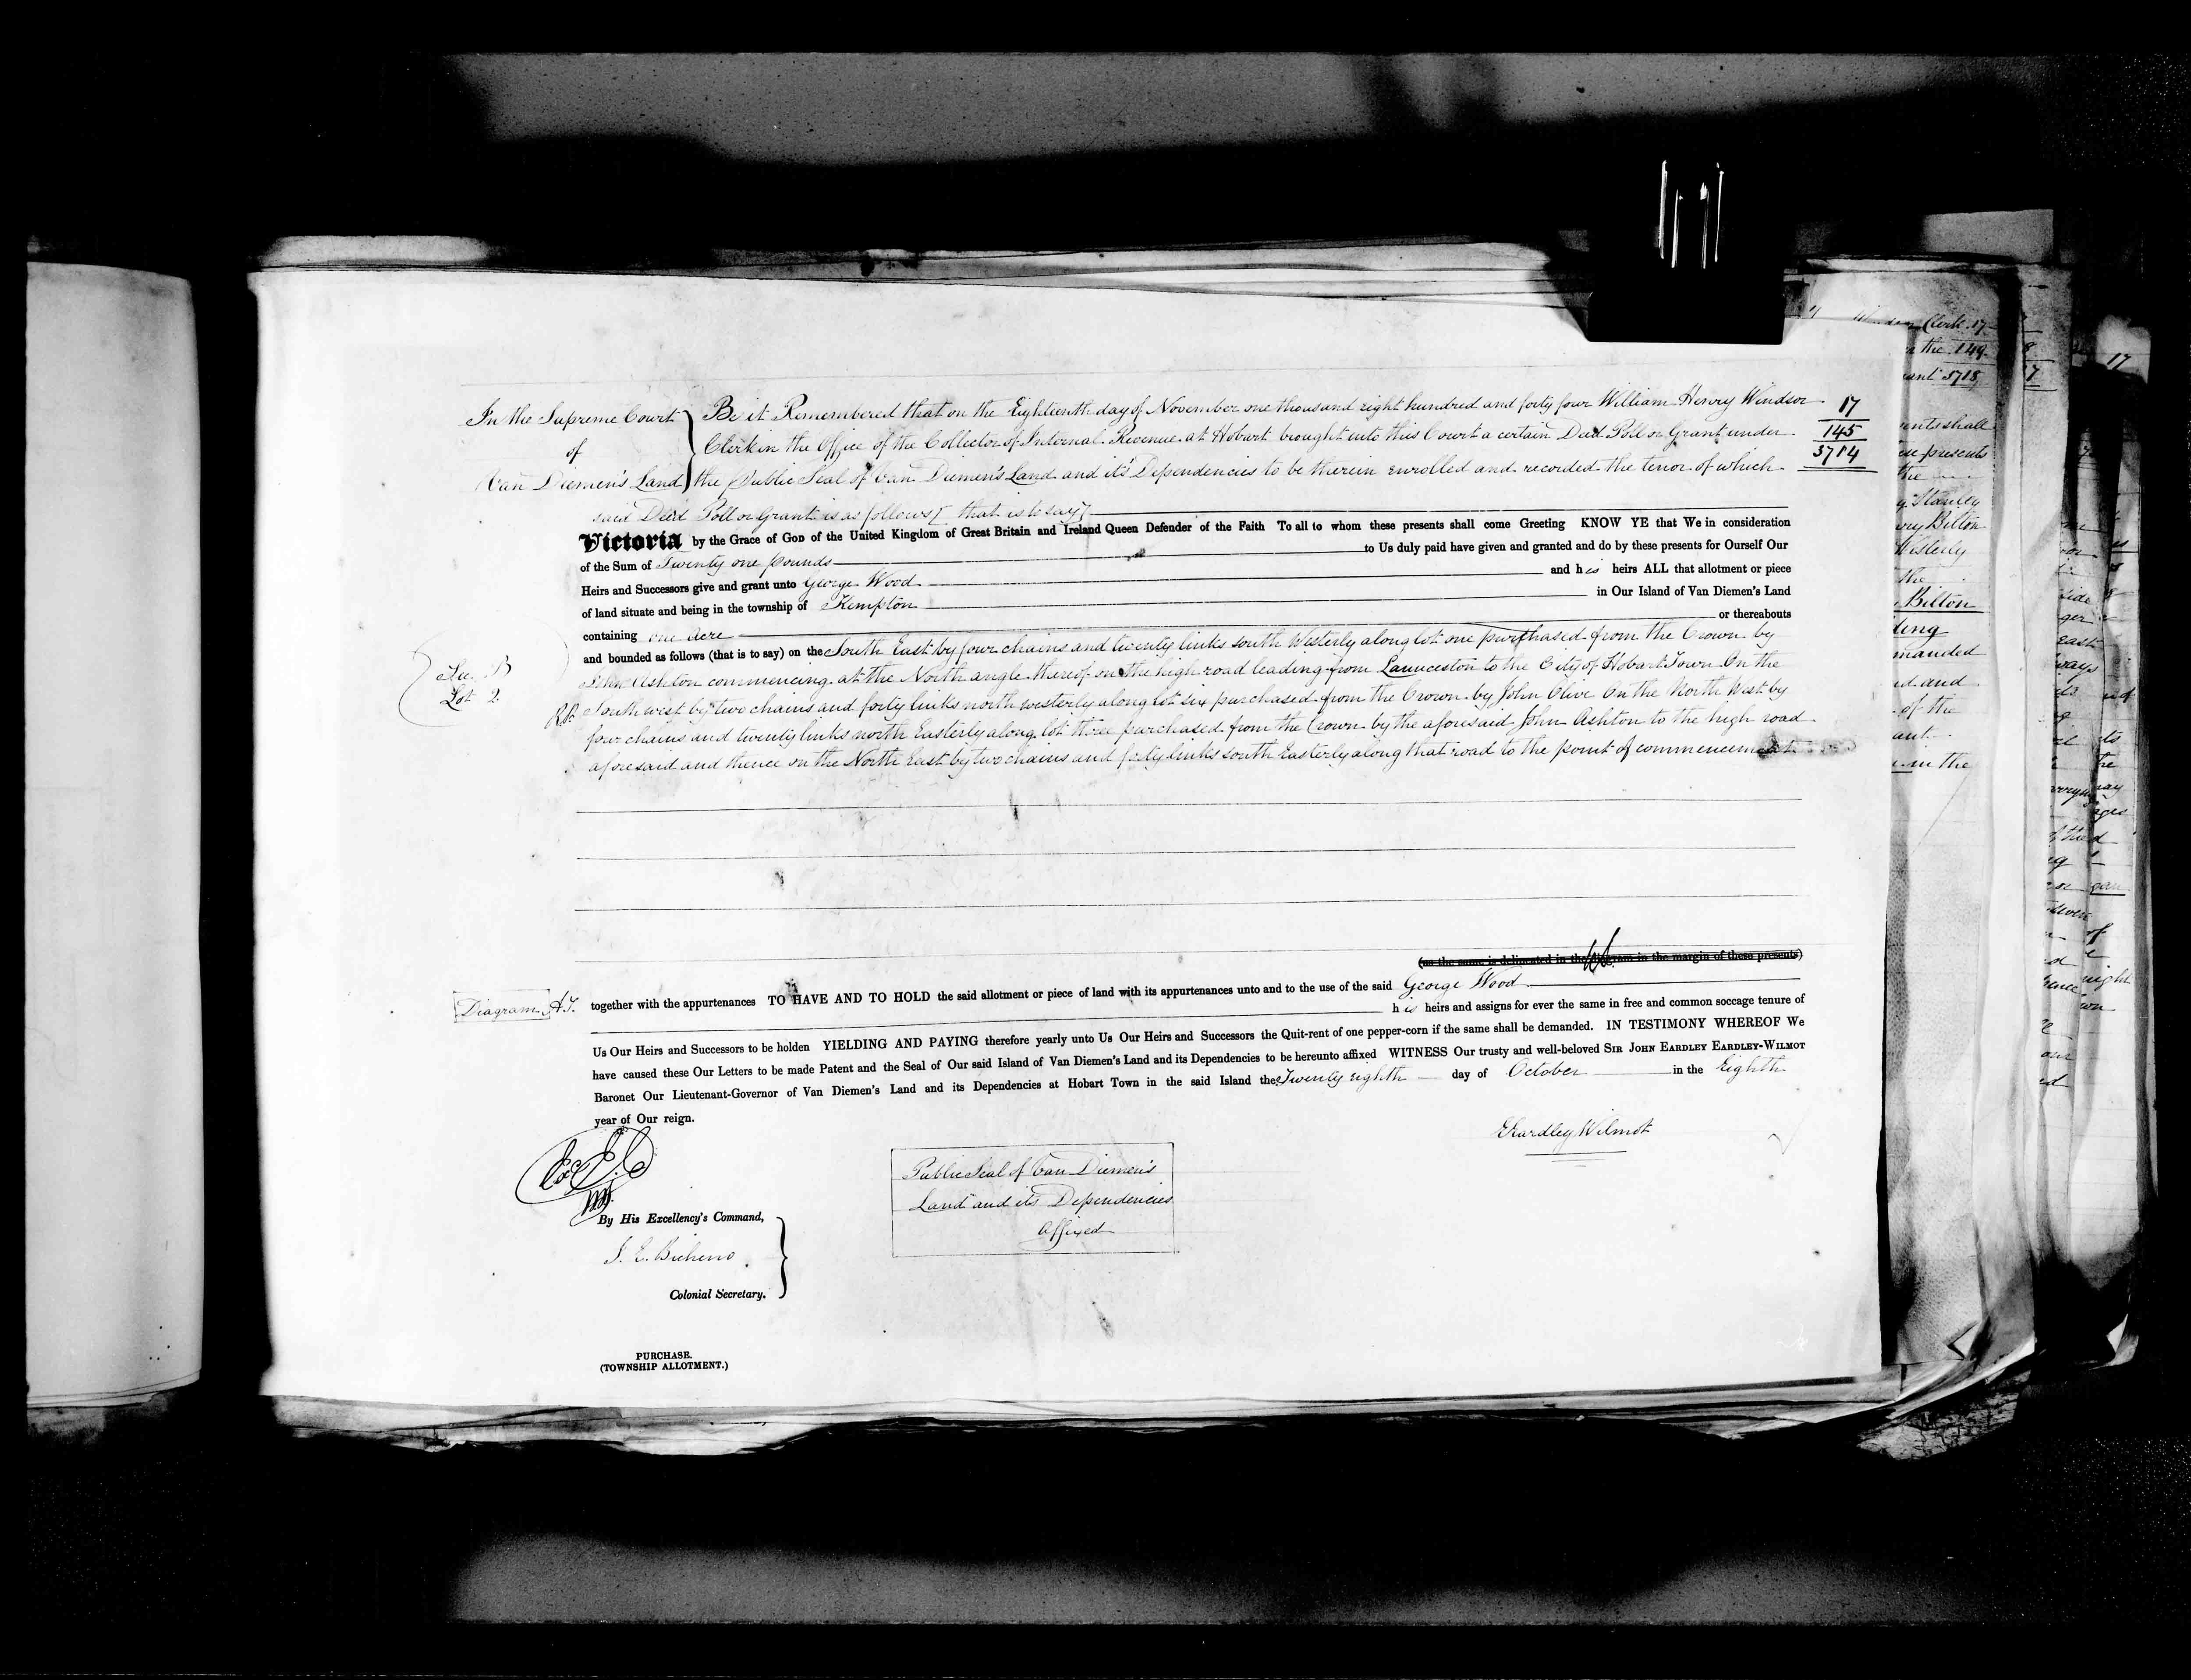 In the Supreme Court
of
Van Diemen's Land
Be it Remembered that on the Eighteenth day of November one thousand eight hundred and forty four William Henry Windsor
Clerk in the Office of the Collector of Internal Revenue at Hobart brought into this Court a certain Deed Poll or Grant under
the Public Seal of Van Diemen's Land and its Dependencies to be therein enrolled and recorded the tenor of which
said Deed Poll or Grant is as follows [that is to say]
17
145
3714
Victoria by the Grace of God of the United Kingdom of Great Britain and Ireland Queen Defender of the Faith To all to whom these presents shall come Greeting KNOW YE that We in consideration
of the Sum of Twenty one pounds to Us duly paid have given and granted and do by these presents for Ourself Our
Heirs and Successors give and grant unto George Wood and his heirs ALL that allotment or piece
of land situate and being in the township of Kempton in Our Island of Van Diemen's Land
containing one Acre or thereabouts
and bounded as follows (that is to say) on the South East by four chains and twenty links south Westerly along lot one purchased from the Crown by
John Ashton commencing at the North angle thereof on the high road leading from Launceston to the City of Hobart Town On the
South west by two chains and forty links north westerly along lot six purchased from the Crown by John Olive On the North West by
four chains and twenty links north Easterly along lot three purchased from the Crown by the aforesaid John Ashton to the high road
aforesaid and thence on the North East by two chains and forty links south Easterly along that road to the point of commencement
Sec. B
Lot 2
(as the same is delineated in the diagram in the margin of these presents)
Diagram
together with the appurtenances TO HAVE AND TO HOLD the said allotment or piece of land with its appurtenances unto and to the use of the said George Wood
his heirs and assigns for ever the same in free and common soccage tenure of
Us Our Heirs and Successors to be holden YIELDING AND PAYING therefore yearly unto Us Our Heirs and Successors the Quit-rent of one pepper-corn if the same shall be demanded. IN TESTIMONY WHEREOF We
have caused these Our Letters to be made Patent and the Seal of Our said Island of Van Diemen's Land and its Dependencies to be hereunto affixed WITNESS Our trusty and well-beloved SIR JOHN EARDLEY EARDLEY-WILMOT
Baronet Our Lieutenant-Governor of Van Diemen's Land and its Dependencies at Hobart Town in the said Island the Twenty eighth day of October in the Eighth
year of Our reign.
E Eardley Wilmot
Public Seal of Van Diemen's
Land and its Dependencies
Affixed
By His Excellency's Command,
J. E. Bicheno
Colonial Secretary.
PURCHASE.
(TOWNSHIP ALLOTMENT.)